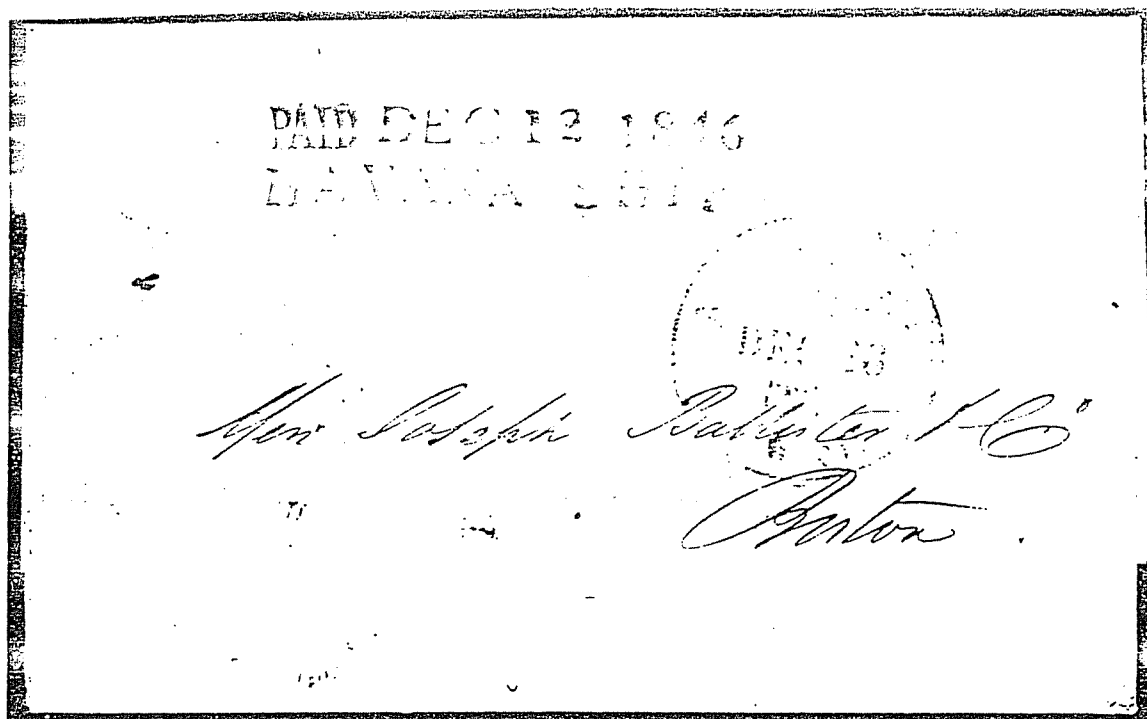 PAID DEC 12 1846
HAVANA SHIP
DEC 13
Mess Joseph Ballister & Co
Boston.